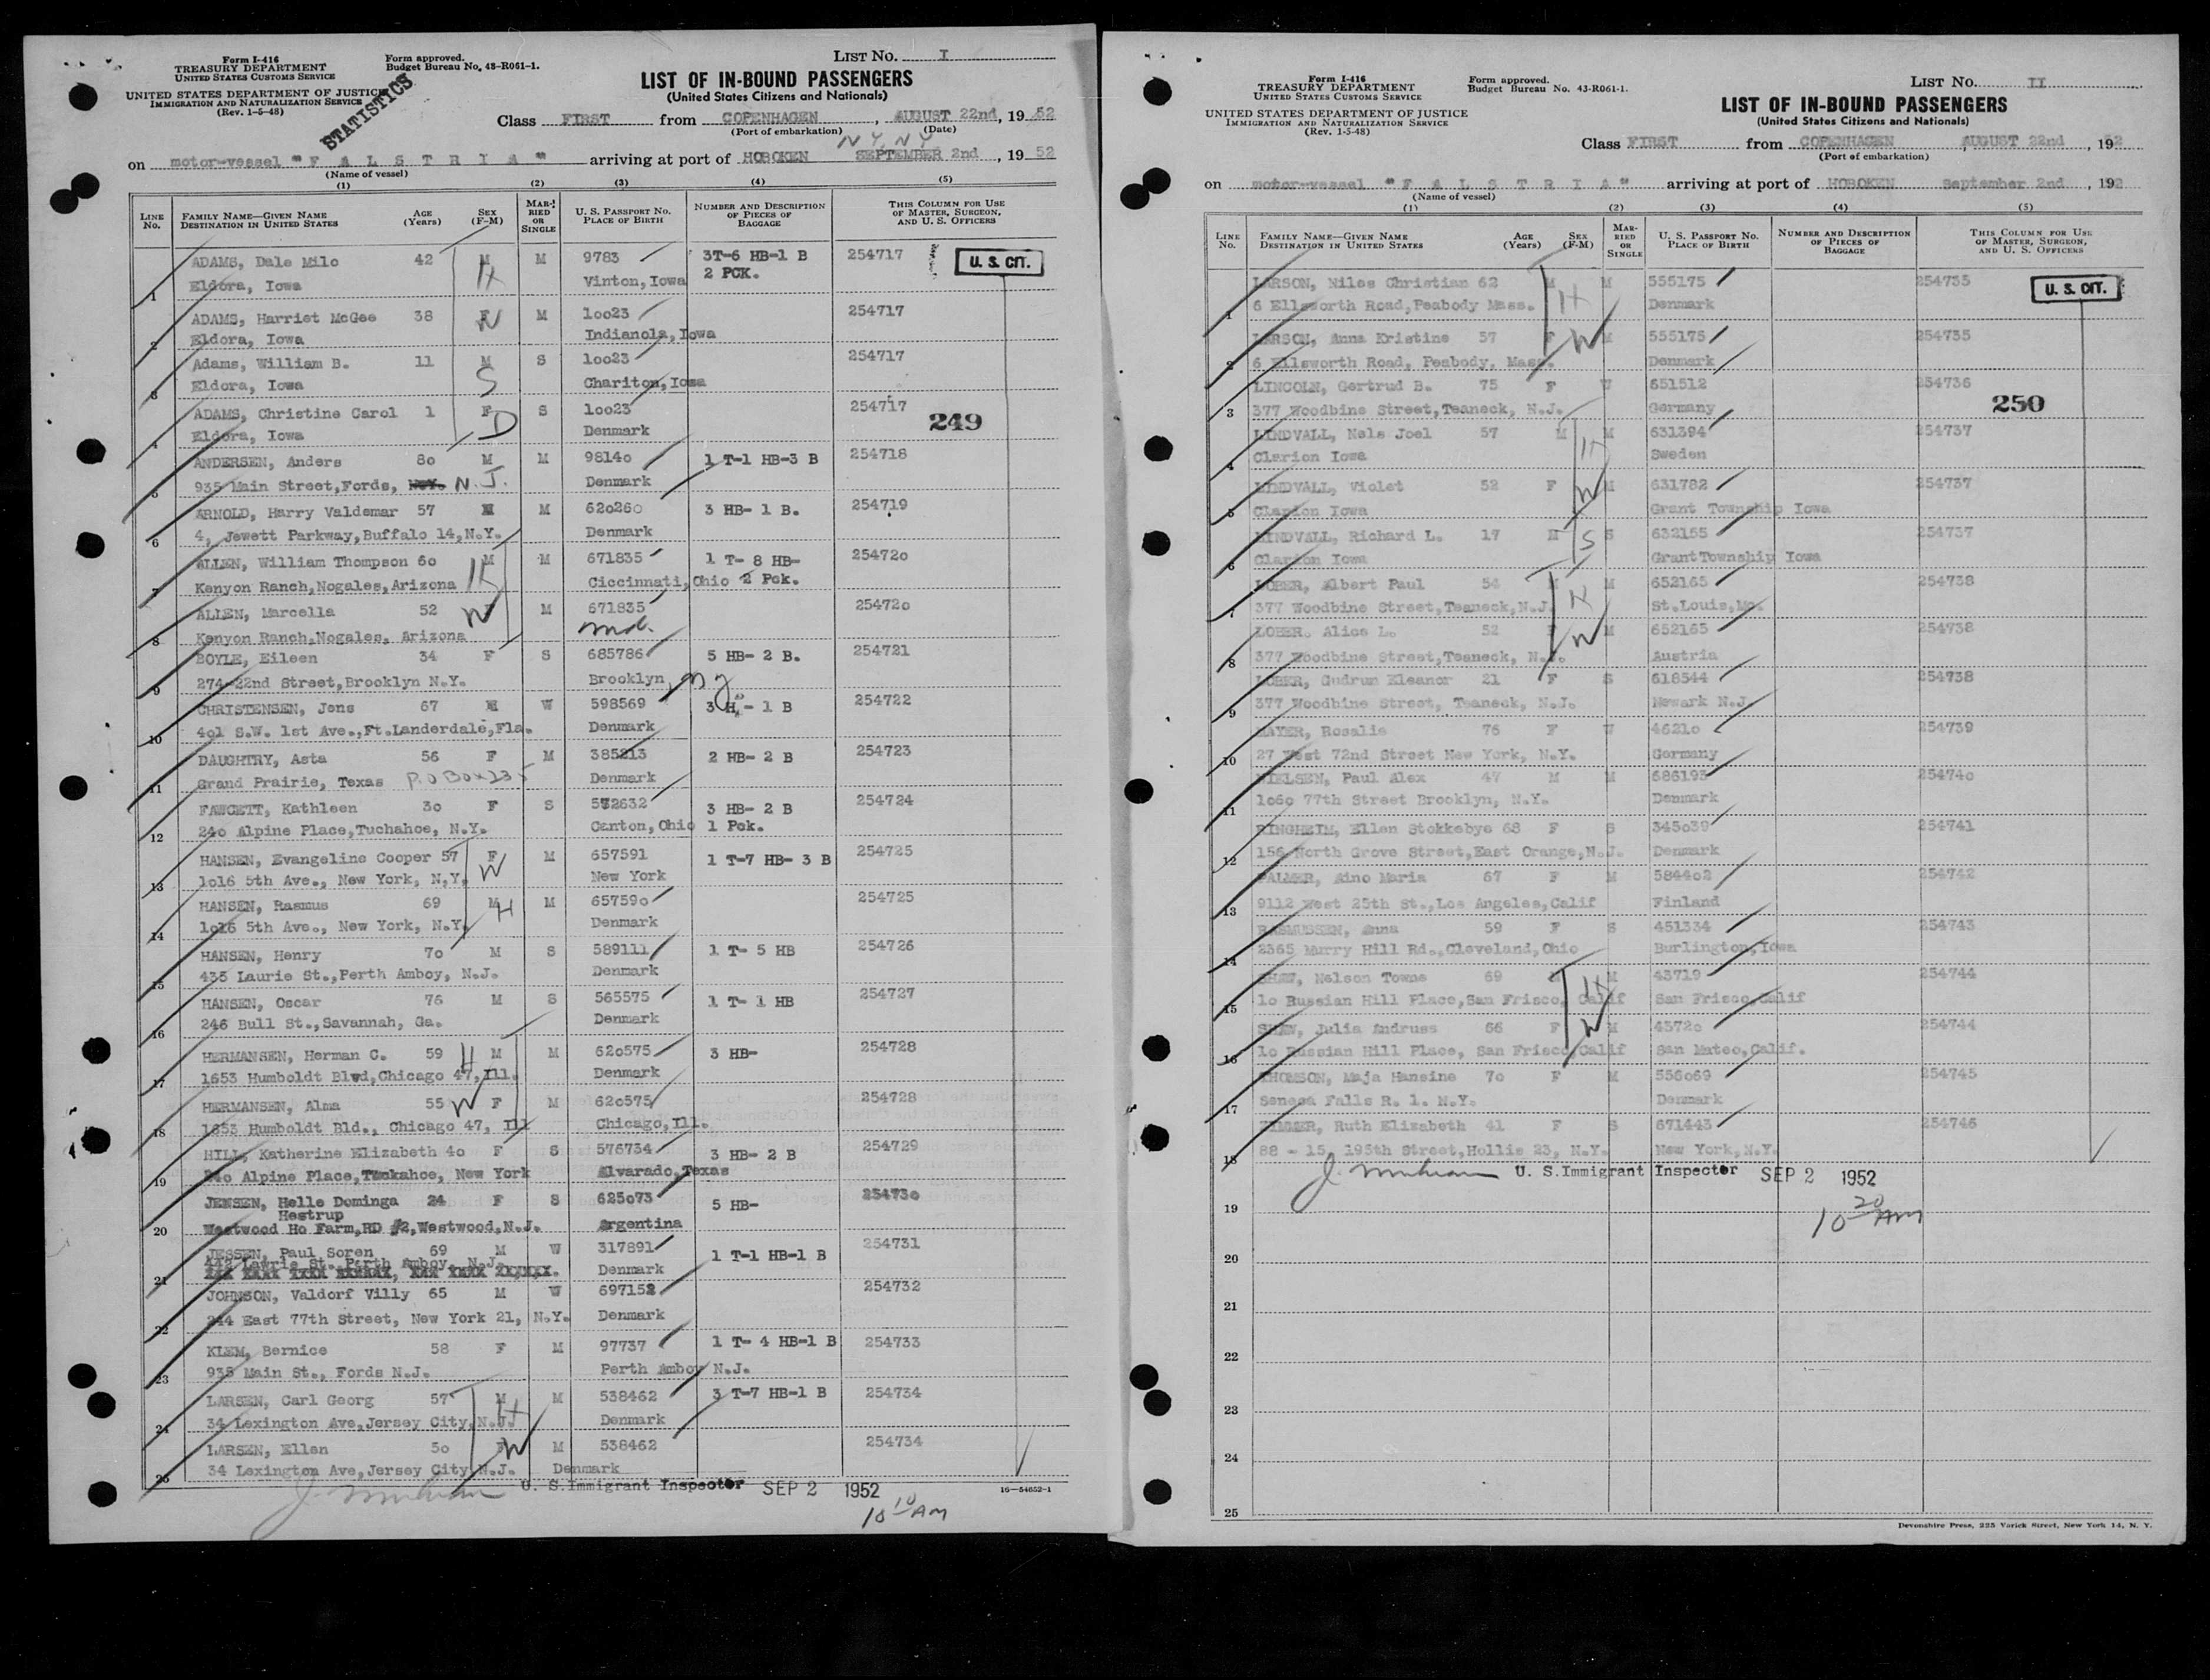 Form I-416
TREASURY DEPARTMENT
UNITED STATES CUSTOMS SERVICE
UNITED STATES DEPARTMENT OF JUSTICE
IMMIGRATION AND NATURALIZATION SERVICE
(Rev. 1-5-48)
Form approved.
Budget Bureau No. 43-R061-1.
STATISTICS
LIST No. I
LIST OF IN-BOUND PASSENGERS
(United States Citizens and Nationals)
Class FIRST from COPENHAGEN, AUGUST 22nd, 1952
(Port of embarkation) (Date)
N Y, N Y
on motor-vessel "F A L S T R I A" arriving at port of HOBOKEN SEPTEMBER 2nd, 1952
(Name of vessel)
(1) (2) (3) (4) (5)
LINE No. FAMILY NAME—GIVEN NAME DESTINATION IN UNITED STATES AGE (Years) SEX (F-M) MARRIED OR SINGLE U. S. PASSPORT No. PLACE OF BIRTH NUMBER AND DESCRIPTION OF PIECES OF BAGGAGE THIS COLUMN FOR USE OF MASTER, SURGEON, AND U. S. OFFICERS
U. S. CIT.
ADAMS, Dale Milo 42 M H M 9783 3T-6 HB-1 B 254717
1 Eldora, Iowa Vinton, Iowa 2 PCK.
ADAMS, Harriet McGee 38 F W M 10023 254717
2 Eldora, Iowa Indianola, Iowa
Adams, William B. 11 M S S 10023 254717
3 Eldora, Iowa Chariton, Iowa
ADAMS, Christine Carol 1 F D S 10023 254717
249
4 Eldora, Iowa Denmark
ANDERSEN, Anders 80 M M 98140 1 T-1 HB-3 B 254718
5 935 Main Street, Fords, N.J. Denmark
ARNOLD, Harry Valdemar 57 M M 620260 3 HB- 1 B. 254719
6 4, Jewett Parkway, Buffalo 14, N.Y. Denmark
ALLEN, William Thompson 60 M H M 671835 1 T- 8 HB- 254720
7 Kenyon Ranch, Nogales, Arizona Ciccinnati, Ohio 2 Pck.
ALLEN, Marcella 52 F W M 671835 254720
8 Kenyon Ranch, Nogales, Arizona
BOYLE, Eileen 34 F S 685786 5 HB- 2 B. 254721
9 274-22nd Street, Brooklyn N.Y. Brooklyn, N Y
CHRISTENSEN, Jens 67 M W 598569 3 H.- 1 B 254722
10 401 S.W. 1st Ave., Ft.Landerdale, Fla. Denmark
DAUGHTRY, Asta 56 F M 385213 2 HB- 2 B 254723
11 Grand Prairie, Texas P.O Box 235 Denmark
FAWCETT, Kathleen 30 F S 572632 3 HB- 2 B 254724
12 240 Alpine Place, Tuchahoe, N.Y. Canton, Ohio 1 Pck.
HANSEN, Evangeline Cooper 57 F W M 657591 1 T-7 HB- 3 B 254725
13 1016 5th Ave., New York, N.Y. New York
HANSEN, Rasmus 69 M H M 657590 254725
14 1016 5th Ave., New York, N.Y. Denmark
HANSEN, Henry 70 M S 589111 1 T- 5 HB 254726
15 435 Laurie St., Perth Amboy, N.J. Denmark
HANSEN, Oscar 76 M S 565575 1 T- 1 HB 254727
16 246 Bull St., Savannah, Ga. Denmark
HERMANSEN, Herman C. 59 H M M 620575 3 HB- 254728
17 1653 Humboldt Blvd, Chicago 47, Ill. Denmark
HERMANSEN, Alma 55 W F M 620575 254728
18 1653 Humboldt Bld., Chicago 47, Ill Chicago, Ill.
HILL, Katherine Elizabeth 40 F S 576734 3 HB- 2 B 254729
19 240 Alpine Place, Tuckahoe, New York Alvarado, Texas
JENSEN, Helle Dominga 24 F S 625073 5 HB- 254730
Hestrup
20 Westwood Ho Farm, RD #2, Westwood, N.J. Argentina
JESSEN, Paul Soren 69 M W 317891 1 T-1 HB-1 B 254731
21 442 Laurie St. Perth Amboy, N.J. Denmark
JOHNSON, Valdorf Villy 65 M W 697152 254732
22 244 East 77th Street, New York 21, N.Y. Denmark
KLEM, Bernice 58 F M 97737 1 T- 4 HB-1 B 254733
23 935 Main St., Fords N.J. Perth Amboy N.J.
LARSEN, Carl Georg 57 M H M 538462 3 T-7 HB-1 B 254734
24 34 Lexington Ave, Jersey City, N.J. Denmark
LARSEN, Ellen 50 F W M 538462 254734
25 34 Lexington Ave, Jersey City N.J. Denmark
U. S. Immigrant Inspector SEP 2 1952
10 10 AM
16—54652-1
Form I-416
TREASURY DEPARTMENT
UNITED STATES CUSTOMS SERVICE
UNITED STATES DEPARTMENT OF JUSTICE
IMMIGRATION AND NATURALIZATION SERVICE
(Rev. 1-5-48)
Form approved.
Budget Bureau No. 43-R061-1.
LIST No. II
LIST OF IN-BOUND PASSENGERS
(United States Citizens and Nationals)
Class FIRST from COPENHAGEN, AUGUST 22nd, 192
(Port of embarkation)
on motor-vessel "F A L S T R I A" arriving at port of HOBOKEN September 2nd, 192
(Name of vessel)
(1) (2) (3) (4) (5)
LINE No. FAMILY NAME—GIVEN NAME DESTINATION IN UNITED STATES AGE (Years) SEX (F-M) MARRIED OR SINGLE U. S. PASSPORT No. PLACE OF BIRTH NUMBER AND DESCRIPTION OF PIECES OF BAGGAGE THIS COLUMN FOR USE OF MASTER, SURGEON, AND U. S. OFFICERS
U. S. CIT.
LARSON, Niles Christian 62 M H M 555175 254735
1 6 Ellsworth Road, Peabody Mass. Denmark
LARSON, Anna Kristine 57 F W M 555175 254735
2 6 Ellsworth Road, Peabody, Mass. Denmark
LINCOLN, Gertrud B. 75 F W 651512 254736
250
3 377 Woodbine Street, Teaneck, N.J. Germany
LINDVALL, Nels Joel 57 M H M 631394 254737
4 Clarion Iowa Sweden
LINDVALL, Violet 52 F W M 631782 254737
5 Clarion Iowa Grant Township Iowa
LINDVALL, Richard L. 17 M S S 632155 254737
6 Clarion Iowa GrantTownship Iowa
LOBER, Albert Paul 54 M H M 652165 254738
7 377 Woodbine Street, Teaneck, N.J. St.Louis, Mo.
LOBER, Alice L. 52 F W M 652165 254738
8 377 Woodbine Street, Teaneck, N.J. Austria
LOBER, Gudrun Eleanor 21 F S 618544 254738
9 377 Woodbine Street, Teaneck, N.J. Newark N.J.
MAYER, Rosalie 76 F W 46210 254739
10 27 West 72nd Street New York, N.Y. Germany
NIELSEN, Paul Alex 47 M M 686193 254740
11 1060 77th Street Brooklyn, N.Y. Denmark
RINGHEIM, Ellen Stokkebye 68 F S 345039 254741
12 156 North Grove Street, East Orange, N.J. Denmark
PALMER, Aino Maria 67 F M 584402 254742
13 9112 West 25th St., Los Angeles, Calif Finland
RASMUSSEN, Anna 59 F S 451334 254743
14 2365 Murry Hill Rd., Cleveland, Ohio Burlington, Iowa
SHAW, Nelson Towne 69 M H M 43719 254744
15 10 Russian Hill Place, San Frisco, Calif San Frisco, Calif
SHAW, Julia Andruss 66 F W M 43720 254744
16 10 Russian Hill Place, San Frisco, Calif San Mateo, Calif.
THOMSON, Maja Hansine 70 F M 556069 254745
17 Seneca Falls R. 1. N.Y. Denmark
Ruth Elizabeth 41 F S 671443 254746
18 88 - 15, 195th Street, Hollis 23, N.Y. New York, N.Y.
U. S. Immigrant Inspector SEP 2 1952
10 20 AM
19
20
21
22
23
24
25
Devonshire Press, 225 Varick Street, New York 14, N. Y.